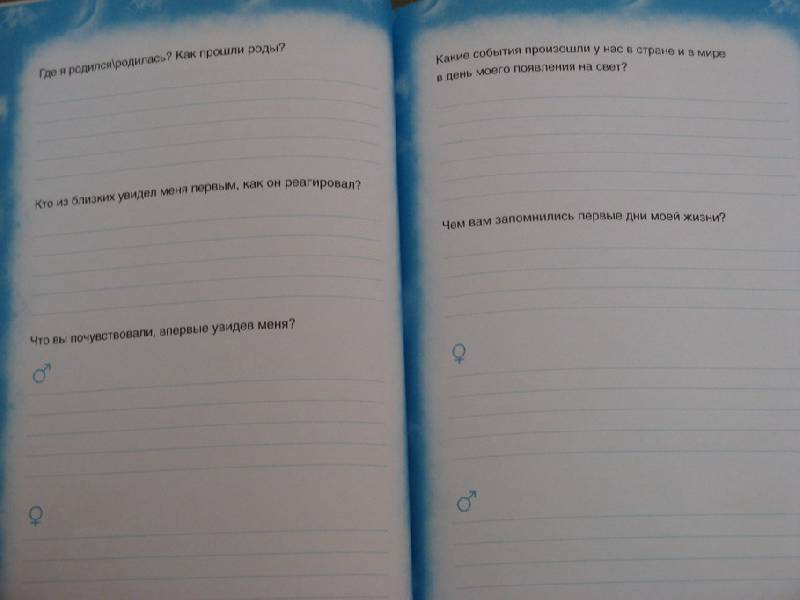 Где я родился\родилась? Как прошли роды?
Кто из близких увидел меня первым, как он реагировал?
Что вы почувствовали, впервые увидев меня?
♂
♀
Какие события произошли у нас в стране и в мире
в день моего появления на свет?
Чем вам запомнились первые дни моей жизни?
♀
♂